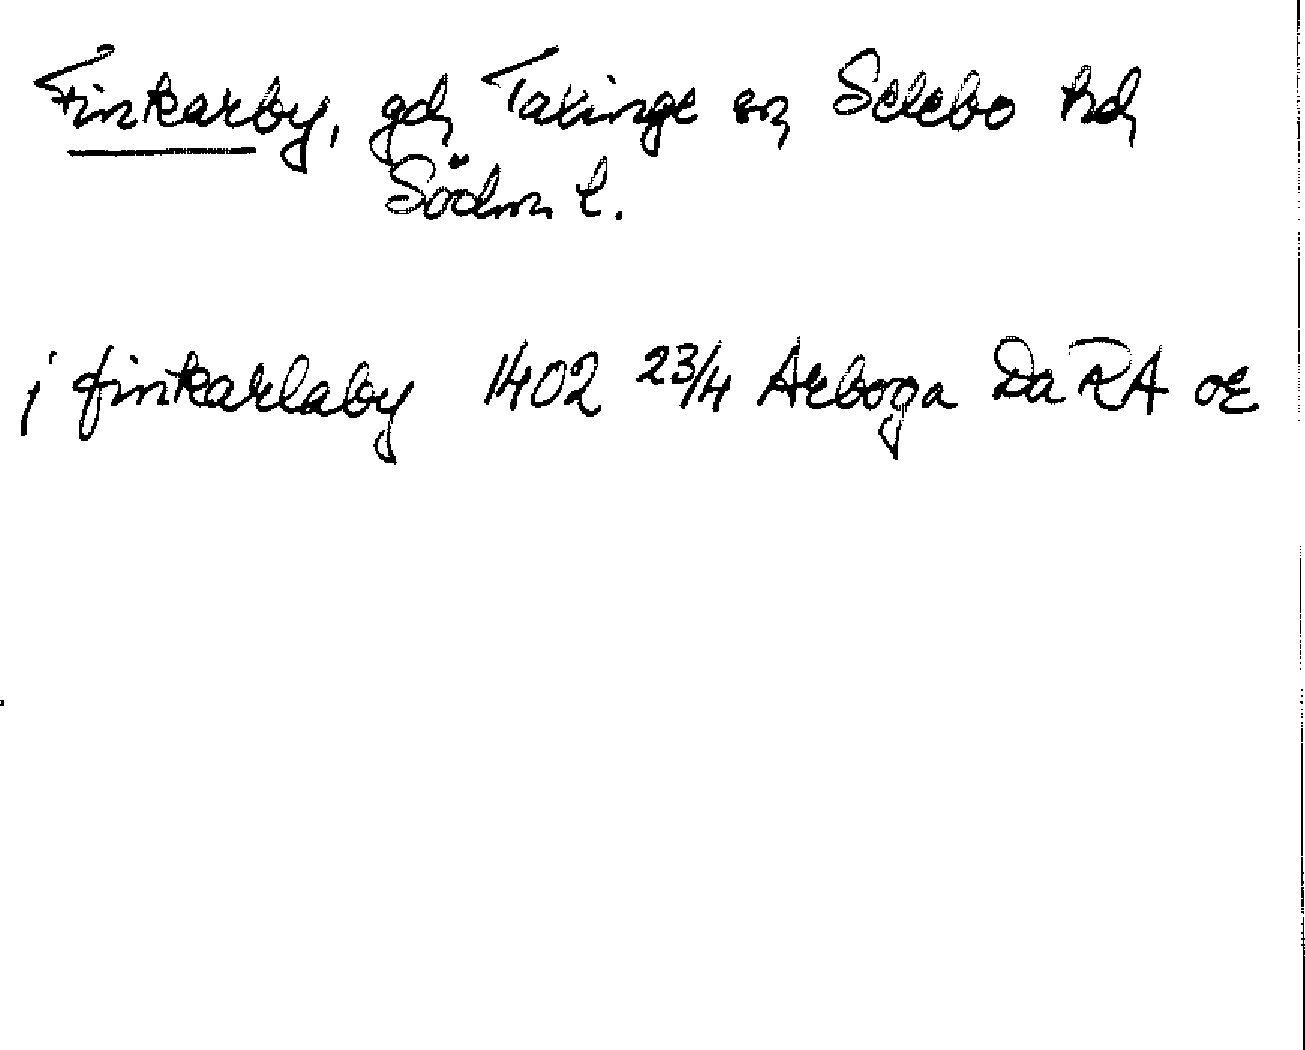 Finkarby, gd, Taxinge sn, Selebo hd,
Södm l.
j finkarlaby 1402 23/4 Arboga Da RA or